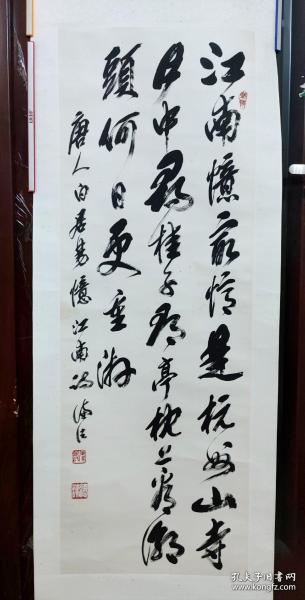 江南憶最憶是杭州山寺
月中尋桂子郡亭枕上看潮
頭何日更重游
唐人白居易憶江南
孔夫子旧书网